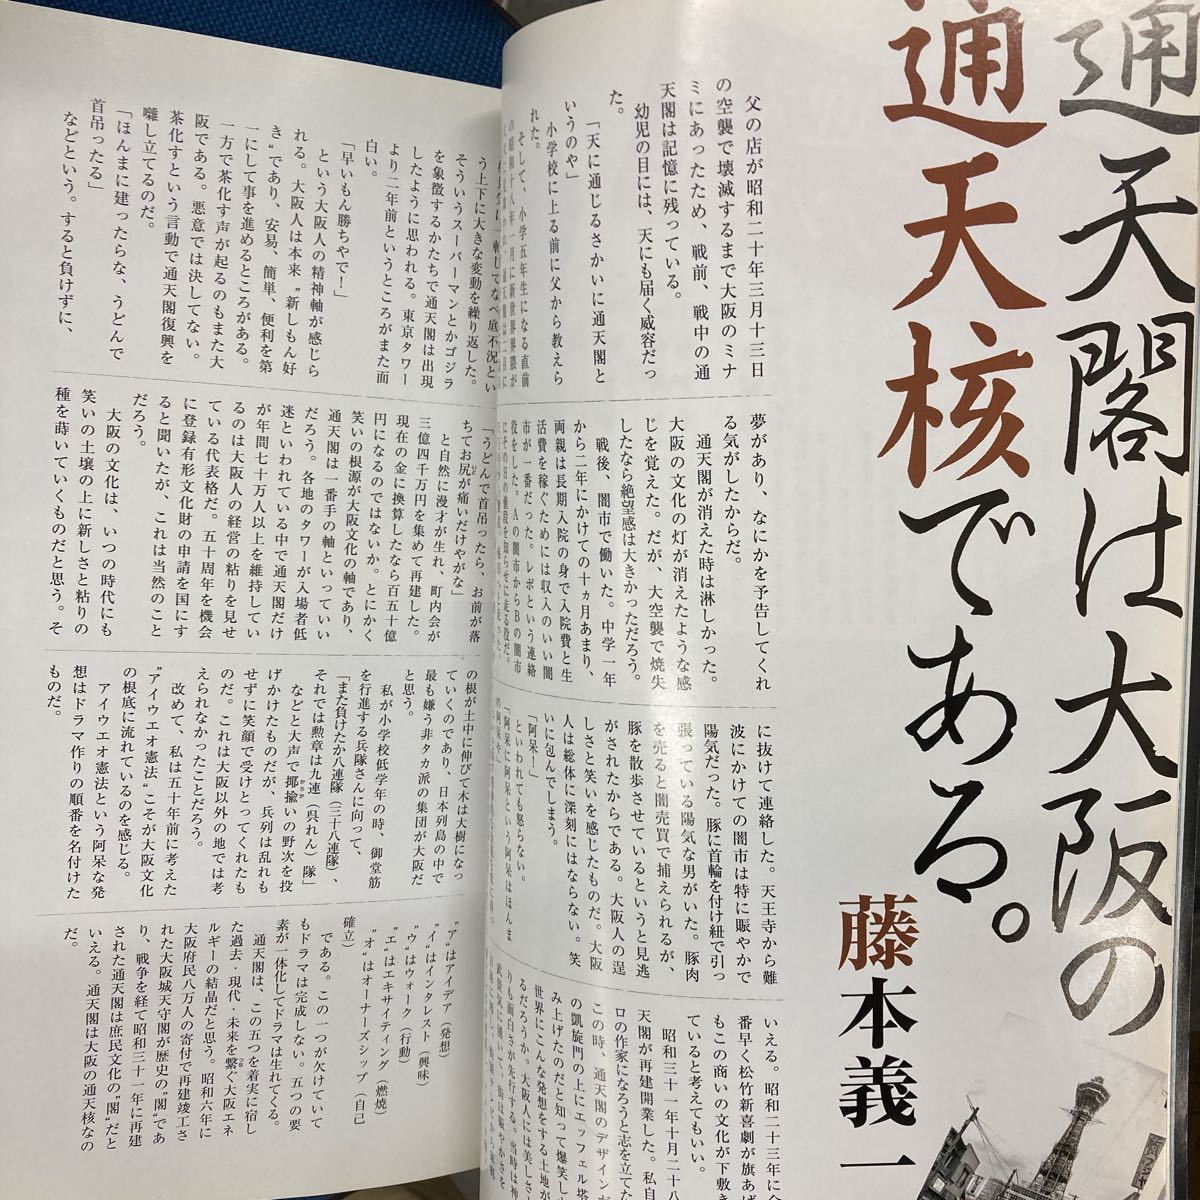 通天閣は大阪の
通天核である。
藤本義一
父の店が昭和二十年三月十三日
の空襲で壊滅するまで大阪のミナ
ミにあったため、戦前、戦中の通
天閣は記憶に残っている。
幼児の目には、天にも届く威容だっ
た。
「天に通じるさかいに通天閣と
いうのや」
小学校に上る前に父から教えら
れた。
そして、小学五年生になる直前
の昭和十八年一月に新世界界隈が
夢があり、なにかを予告してくれ
る気がしたからだ。
通天閣が消えた時は淋しかった。
大阪の文化の灯が消えたような感
じを覚えた。だが、大空襲で焼失
したなら絶望感は大きかっただろう。
戦後、闇市で働いた。中学一年
から二年にかけての十ヵ月あまり、
両親は長期入院の身で入院費と生
活費を稼ぐためには収入のいい闇
市が一番だった。レポという連絡
役をした。Aの闇市からBの闇市
にその日の値段を知らせに走る役だ。
に抜けて連絡した。天王寺から難
波にかけての闇市は特に賑やかで
陽気だった。豚に首輪を付け紐で引っ
張っている陽気な男がいた。豚肉
を売ると闇売買で捕えられるが、
豚を散歩させているというと見逃
がされたからである。大阪人の逞
しさと笑いを感じたものだ。大阪
人は総体に深刻にはならない。笑
いに包んでしまう。
「阿呆！」
といわれても怒らない。
「阿呆に阿呆という阿呆はほんま
の阿呆や」
いえる。昭和二十三年に全
番早く松竹新喜劇が旗あげ
もこの商いの文化が下敷き
ていると考えてもいい。
昭和三十一年十月二十八
天閣が再建開業した。私自
ロの作家になろうと志を立てた
この時、通天閣のデザインが
の凱旋門の上にエッフェル塔
み上げたのだと知って爆笑し
世界にこんな発想をする土地が
るだろうか。大阪人には美しさ
りも面白さが先行する。当時は神
う上下に大きな変動を繰り返した。
そういうスーパーマンとかゴジラ
を象徴するかたちで通天閣は出現
したように思われる。東京タワー
より二年前というところがまた面
白い。
「早いもん勝ちやで！」
という大阪人の精神軸が感じら
れる。大阪人は本来〝新しもん好
き〟であり、安易、簡単、便利を第
一にして事を進めるところがある。
一方で茶化す声が起るのもまた大
阪である。悪意では決してない。
茶化すという言動で通天閣復興を
囃し立てるのだ。
「ほんまに建ったらな、うどんで
首吊ったる」
などという。すると負けずに、
「うどんで首吊ったら、お前が落
ちてお尻が痛いだけやがな」
と自然に漫才が生れ、町内会が
三億四千万円を集めて再建した。
現在の金に換算したなら百五十億
円になるのではないか。とにかく
笑いの根源が大阪文化の軸であり、
通天閣は一番手の軸といっていい
だろう。各地のタワーが入場者低
迷といわれている中で通天閣だけ
が年間七十万人以上を維持してい
るのは大阪人の経営の粘りを見せ
ている代表格だ。五十周年を機会
に登録有形文化財の申請を国にす
ると聞いたが、これは当然のこと
だろう。
大阪の文化は、いつの時代にも
笑いの土壌の上に新しさと粘りの
種を蒔いていくものだと思う。そ
の根が土中に伸びて木は大樹になっ
ていくのであり、日本列島の中で
最も嫌う非タカ派の集団が大阪だ
と思う。
私が小学校低学年の時、御堂筋
を行進する兵隊さんに向って、
「また負けたか八連隊（三十八連隊）、
それでは勲章は九連（呉れん）隊」
などと大声で揶揄いの野次を投
げかけたものだが、兵列は乱れも
せずに笑顔で受けとってくれたも
のだ。これは大阪以外の地では考
えられなかったことだろう。
改めて、私は五十年前に考えた
〝アイウエオ憲法〟こそが大阪文化
の根底に流れているのを感じる。
アイウエオ憲法という阿呆な発
想はドラマ作りの順番を名付けた
ものだ。
〝ア〟はアイデア（発想）
〝イ〟はインタレスト（興味）
〝ウ〟はウォーク（行動）
〝エ〟はエキサイティング（燃焼）
〝オ〟はオーナーズシップ（自己
確立）
である。この一つが欠けていて
もドラマは完成しない。五つの要
素が一体化してドラマは生れてくる。
通天閣は、この五つを着実に宿し
た過去・現代・未来を繋ぐ大阪エネ
ルギーの結晶だと思う。昭和六年に
大阪府民八万人の寄付で再建竣工さ
れた大阪城天守閣が歴史の〝閣〟であ
り、戦争を経て昭和三十一年に再建
された通天閣は庶民文化の〝閣〟だと
いえる。通天閣は大阪の通天核なの
だ。